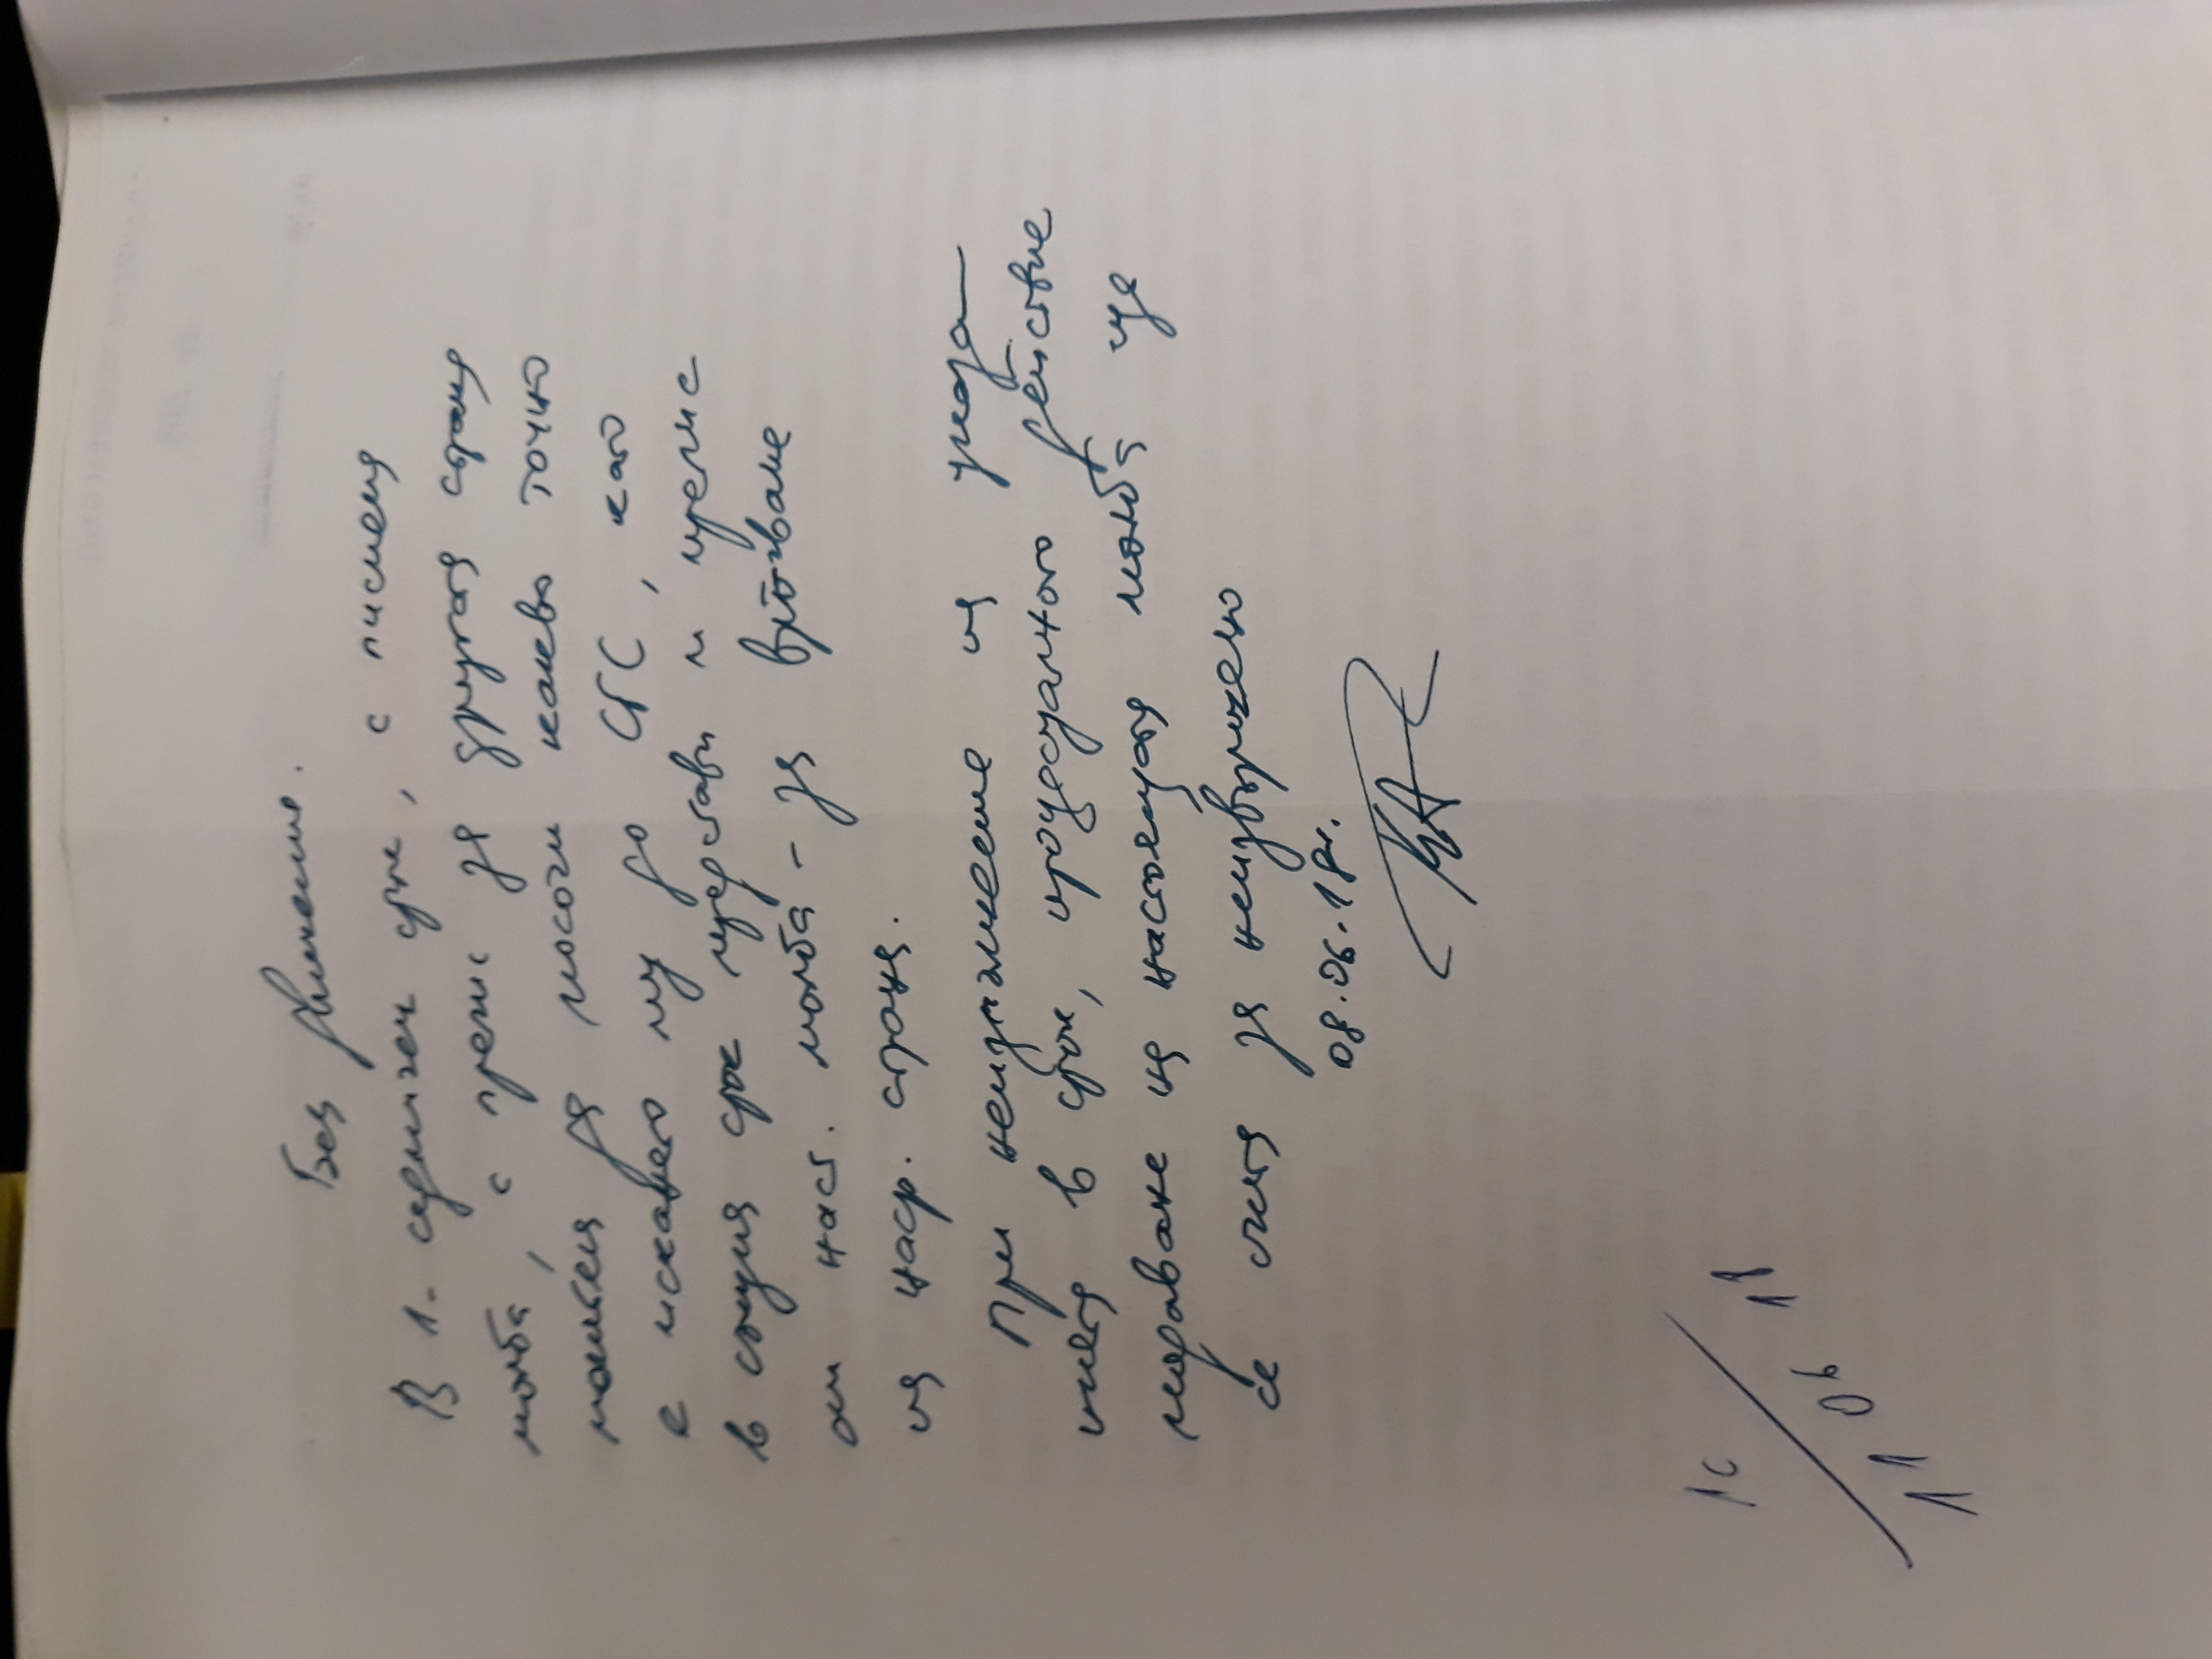 Без движение.
В 1-седмичен срок, с писмена
молба, с препис за другата страна
молителя да посочи какво точно
е искането му до СГС, като
в същия срок представи и препис
от наст. молба - за връчване
на наср. страна.
При неизпълнение на указа-
нията в срок, процесуалното действие
подаване на настоящата молба ще
се счита за неизвършено
08.06.18г.
1с
11 06 18